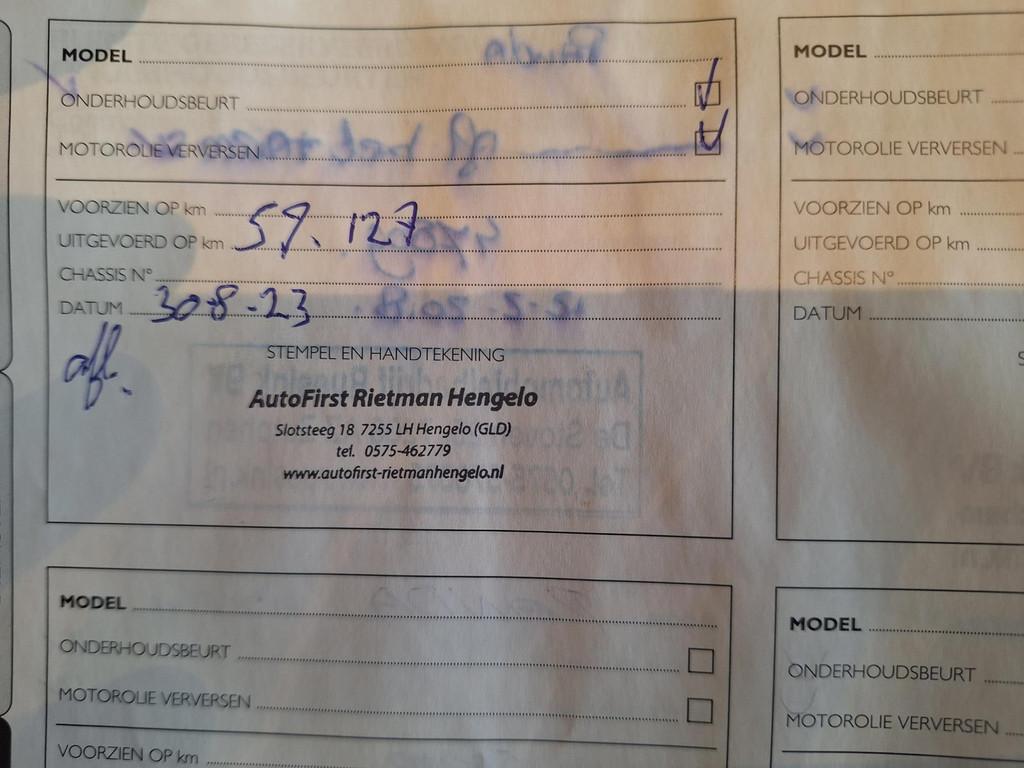 MODEL
ONDERHOUDSBEURT
MOTOROLIE VERVERSEN
VOORZIEN OP km
UITGEVOERD OP km 59.127
CHASSIS N°
DATUM 30-8-23
afl.
STEMPEL EN HANDTEKENING
AutoFirst Rietman Hengelo
Slotsteeg 18 7255 LH Hengelo (GLD)
tel. 0575-462779
www.autofirst-rietmanhengelo.nl
MODEL
ONDERHOUDSBEURT
MOTOROLIE VERVERSEN
VOORZIEN OP km
UITGEVOERD OP km
CHASSIS N°
DATUM
S
MODEL
ONDERHOUDSBEURT
MOTOROLIE VERVERSEN
VOORZIEN OP km
MODEL
ONDERHOUDSBEURT
MOTOROLIE VERVERSEN